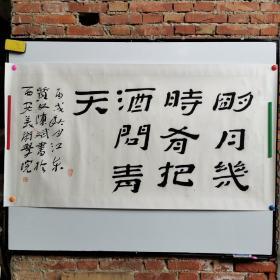 朙月幾
時肴把
酒問青
天
丙戌秋月江東
簡父陳斌書於
西安美術學院